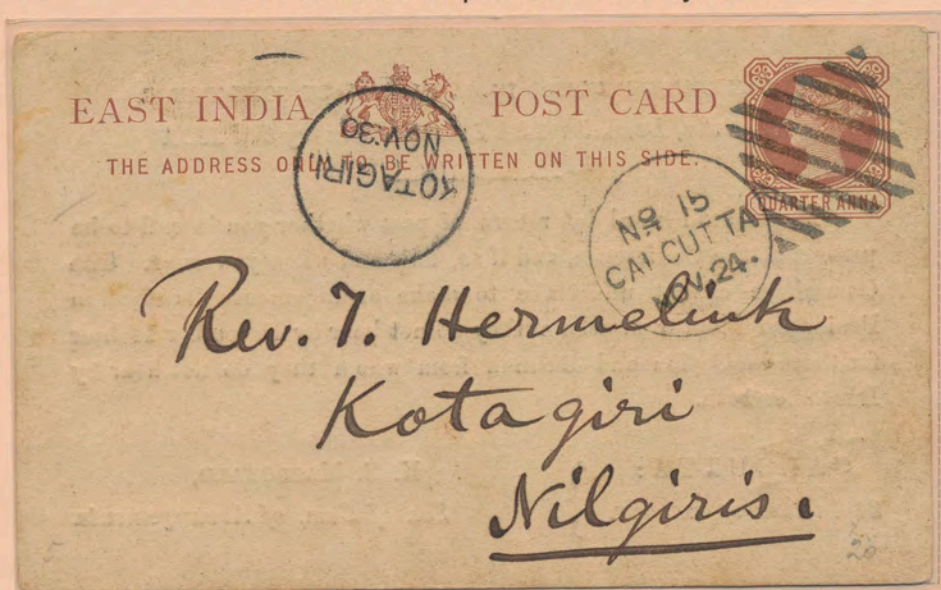 EAST INDIA POST CARD
THE ADDRESS ONLY TO BE WRITTEN ON THIS SIDE.
QUARTER ANNA
KOTAGIRI
NOV. 30
No 15
CALCUTTA
NOV. 24.
Rev. J. Hermelink
Kotagiri
Nilgiris.
20